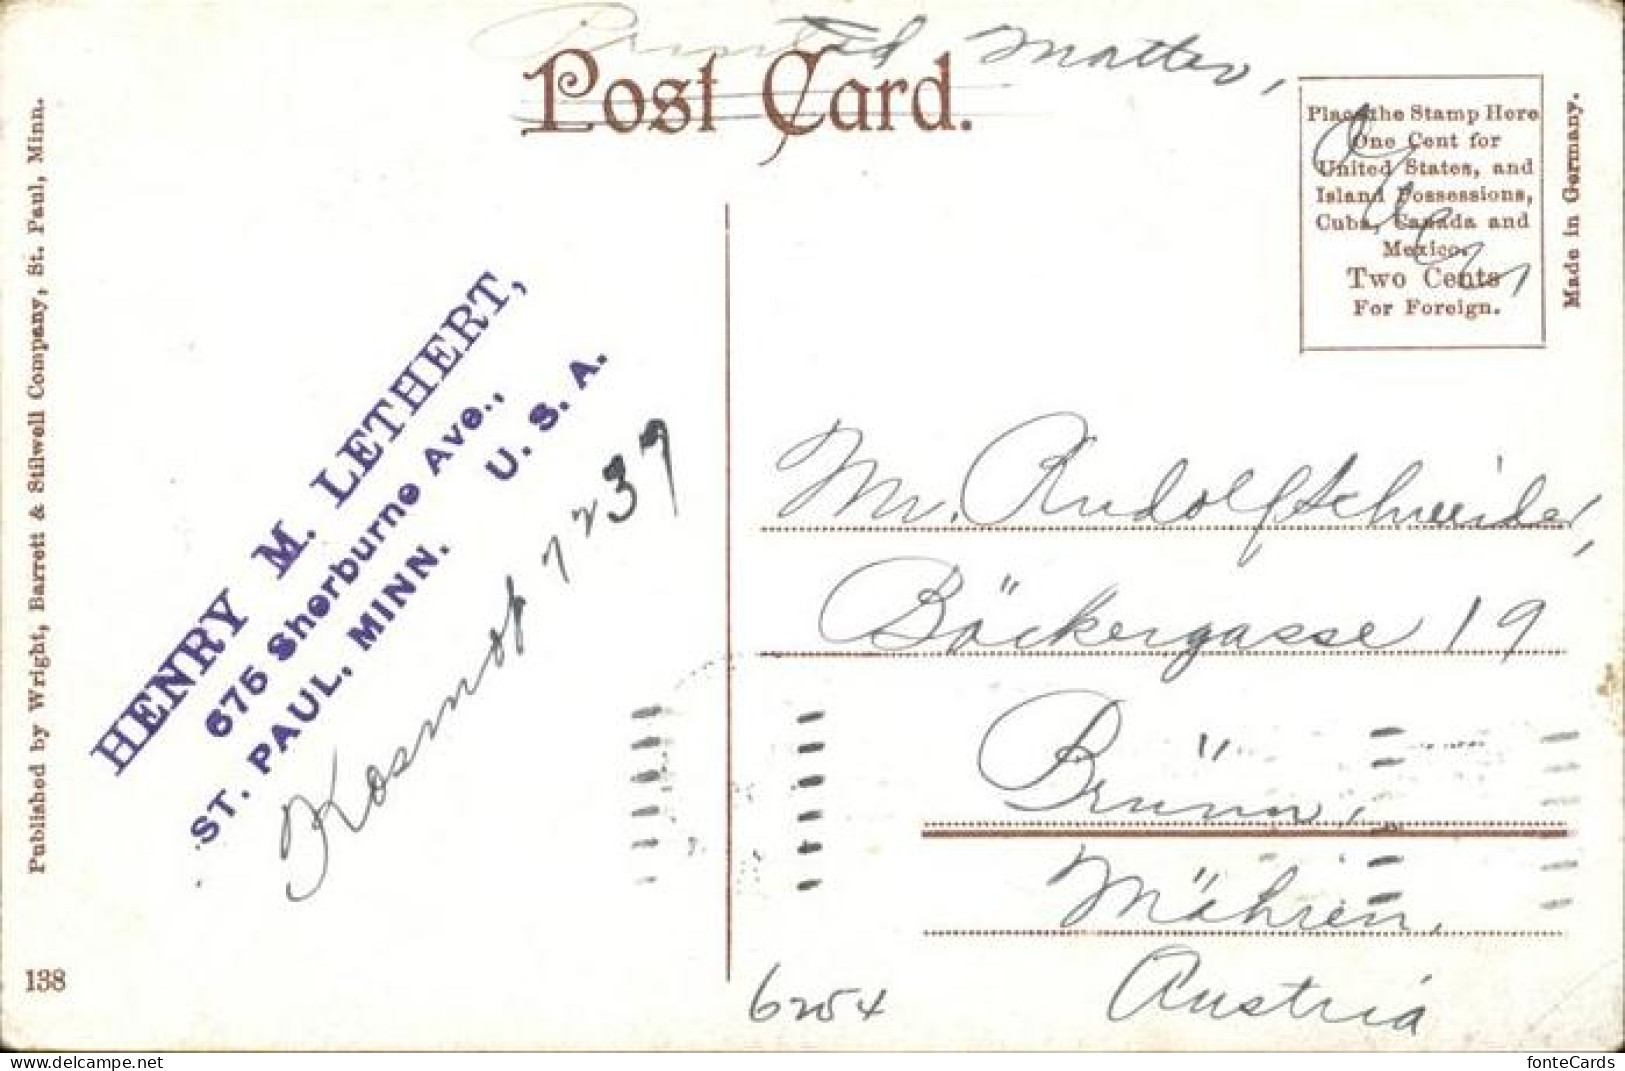 Printed Matter,
Post Card.
Place the Stamp Here
One Cent for
United States, and
Island Possessions,
Cuba, Canada and
Mexico.
Two Cents
For Foreign.
Made in Germany.
Published by Wright, Barrett & Stilwell Company, St. Paul, Minn.
HENRY M. LETHERT,
675 Sherburne Ave.,
ST. PAUL, MINN. U. S. A.
Kosmos 7237
Mr. Rudolf Schneider,
Bäckergasse 19
Brünn,
Mähren,
Austria
138
6254
delcampe.net
fonteCards